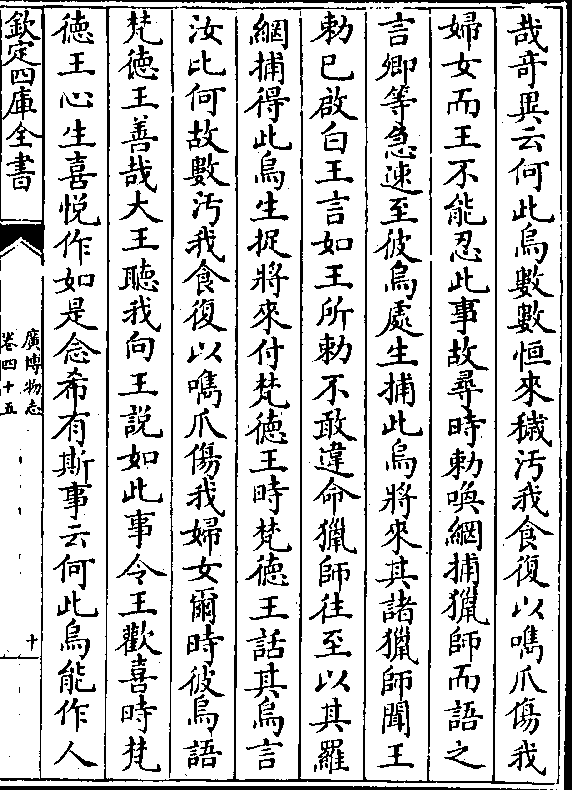 哉竒異云何此烏數數恒來穢汚我食復以嘴爪傷我
婦女而王不能忍此事故尋時勅喚網捕獵師而語之
言卿等急速至彼烏處生捕此烏將來其諸獵師聞王
勅已啟白王言如王所勅不敢違命獵師往至以其羅
網捕得此烏生捉將來付梵徳王時梵徳王話其烏言
汝比何故數汚我食復以嘴爪傷我婦女爾時彼烏語
梵徳王善哉大王聽我向王說如此事令王歡喜時梵
徳王心生喜悅作如是念希有斯事云何此烏能作人
欽定四庫全書
廣博物志
卷四十五
十